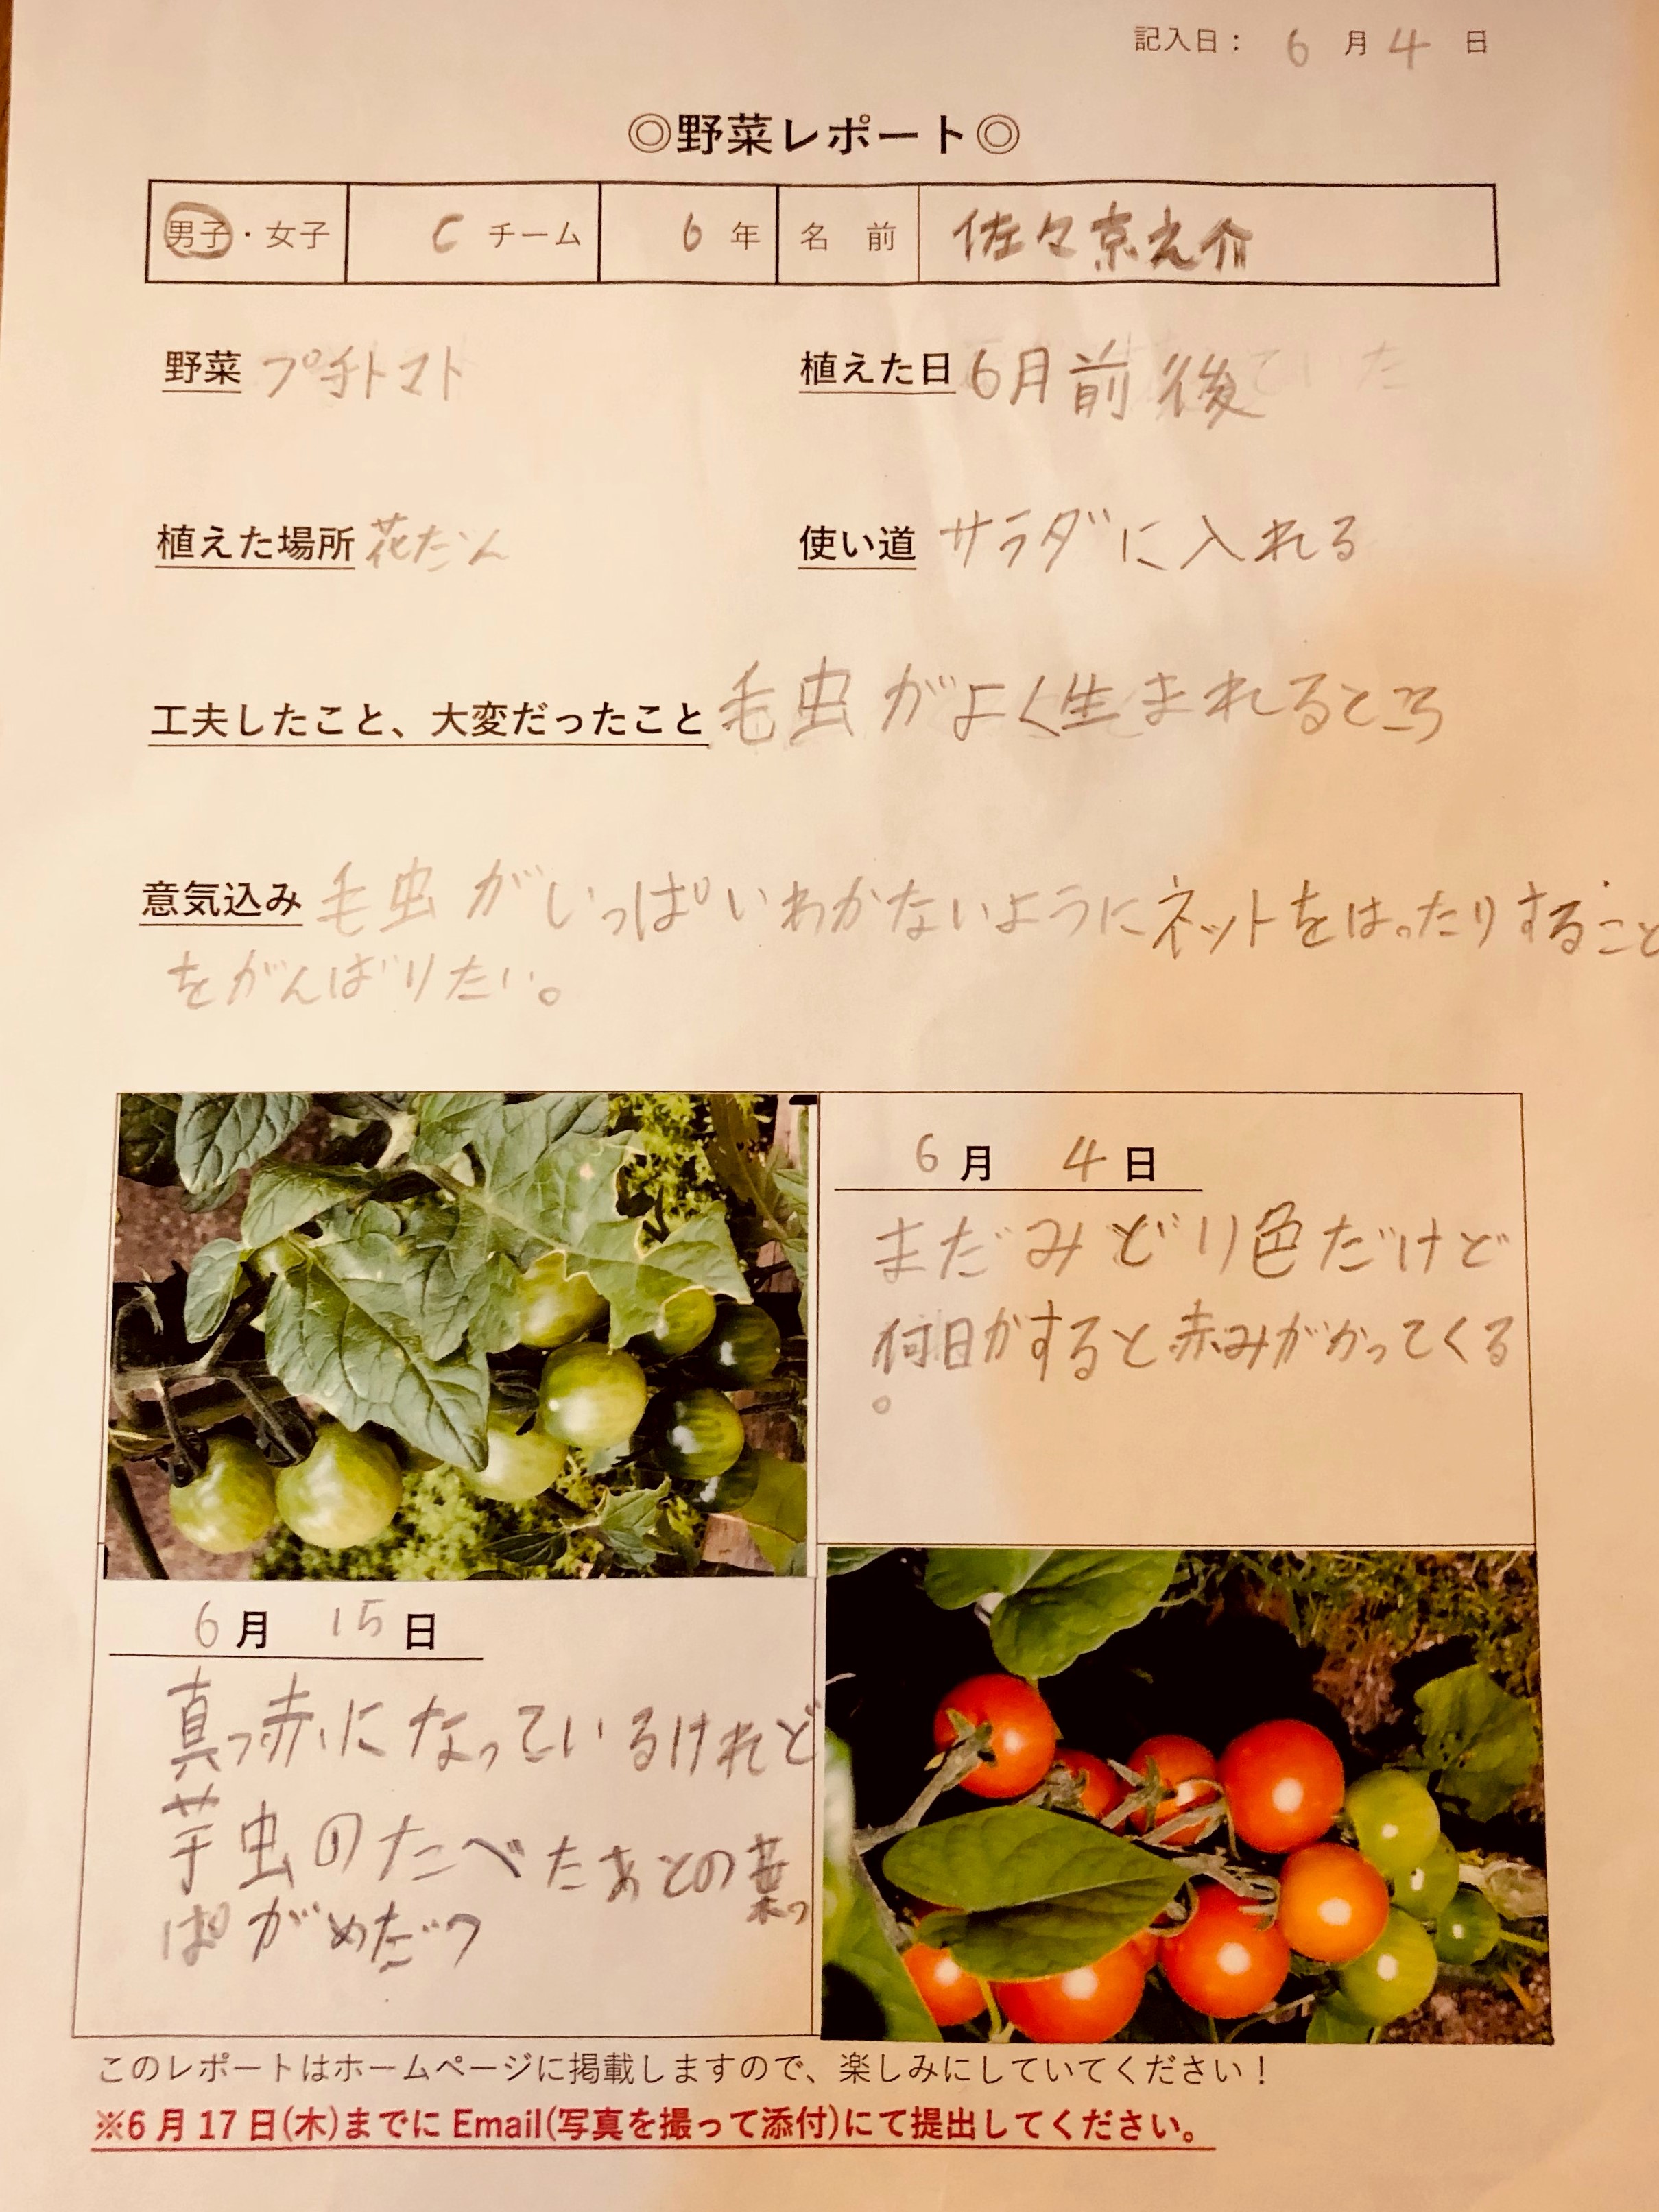 記入日： 6 月 4 日
◎野菜レポート◎
男子・女子 C チーム 6 年 名 前 佐々京之介
野菜 プチトマト 植えた日 6月前後
植えた場所 花だん 使い道 サラダに入れる
工夫したこと、大変だったこと 毛虫がよく生まれるところ
意気込み 毛虫がいっぱいわかないようにネットをはったりすること
をがんばりたい。
6 月 4 日
まだみどり色だけど
何日かすると赤みがかってくる
。
6 月 15 日
真っ赤になっているけれど
芋虫のたべたあとの葉っ
ぱがめだつ
このレポートはホームページに掲載しますので、楽しみにしていてください！
※6 月 17 日(木)までに Email(写真を撮って添付)にて提出してください。